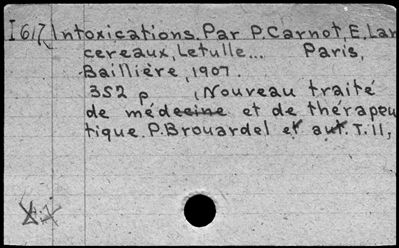 I617 Intoxications. Par P. Carnot, E. Lan
cereaux, Letulle... Paris,
Baillière, 1907.
352 p (Nouveau traité
de médecine et de thérapeu
tique. P. Brouardel et aut. T. 11,